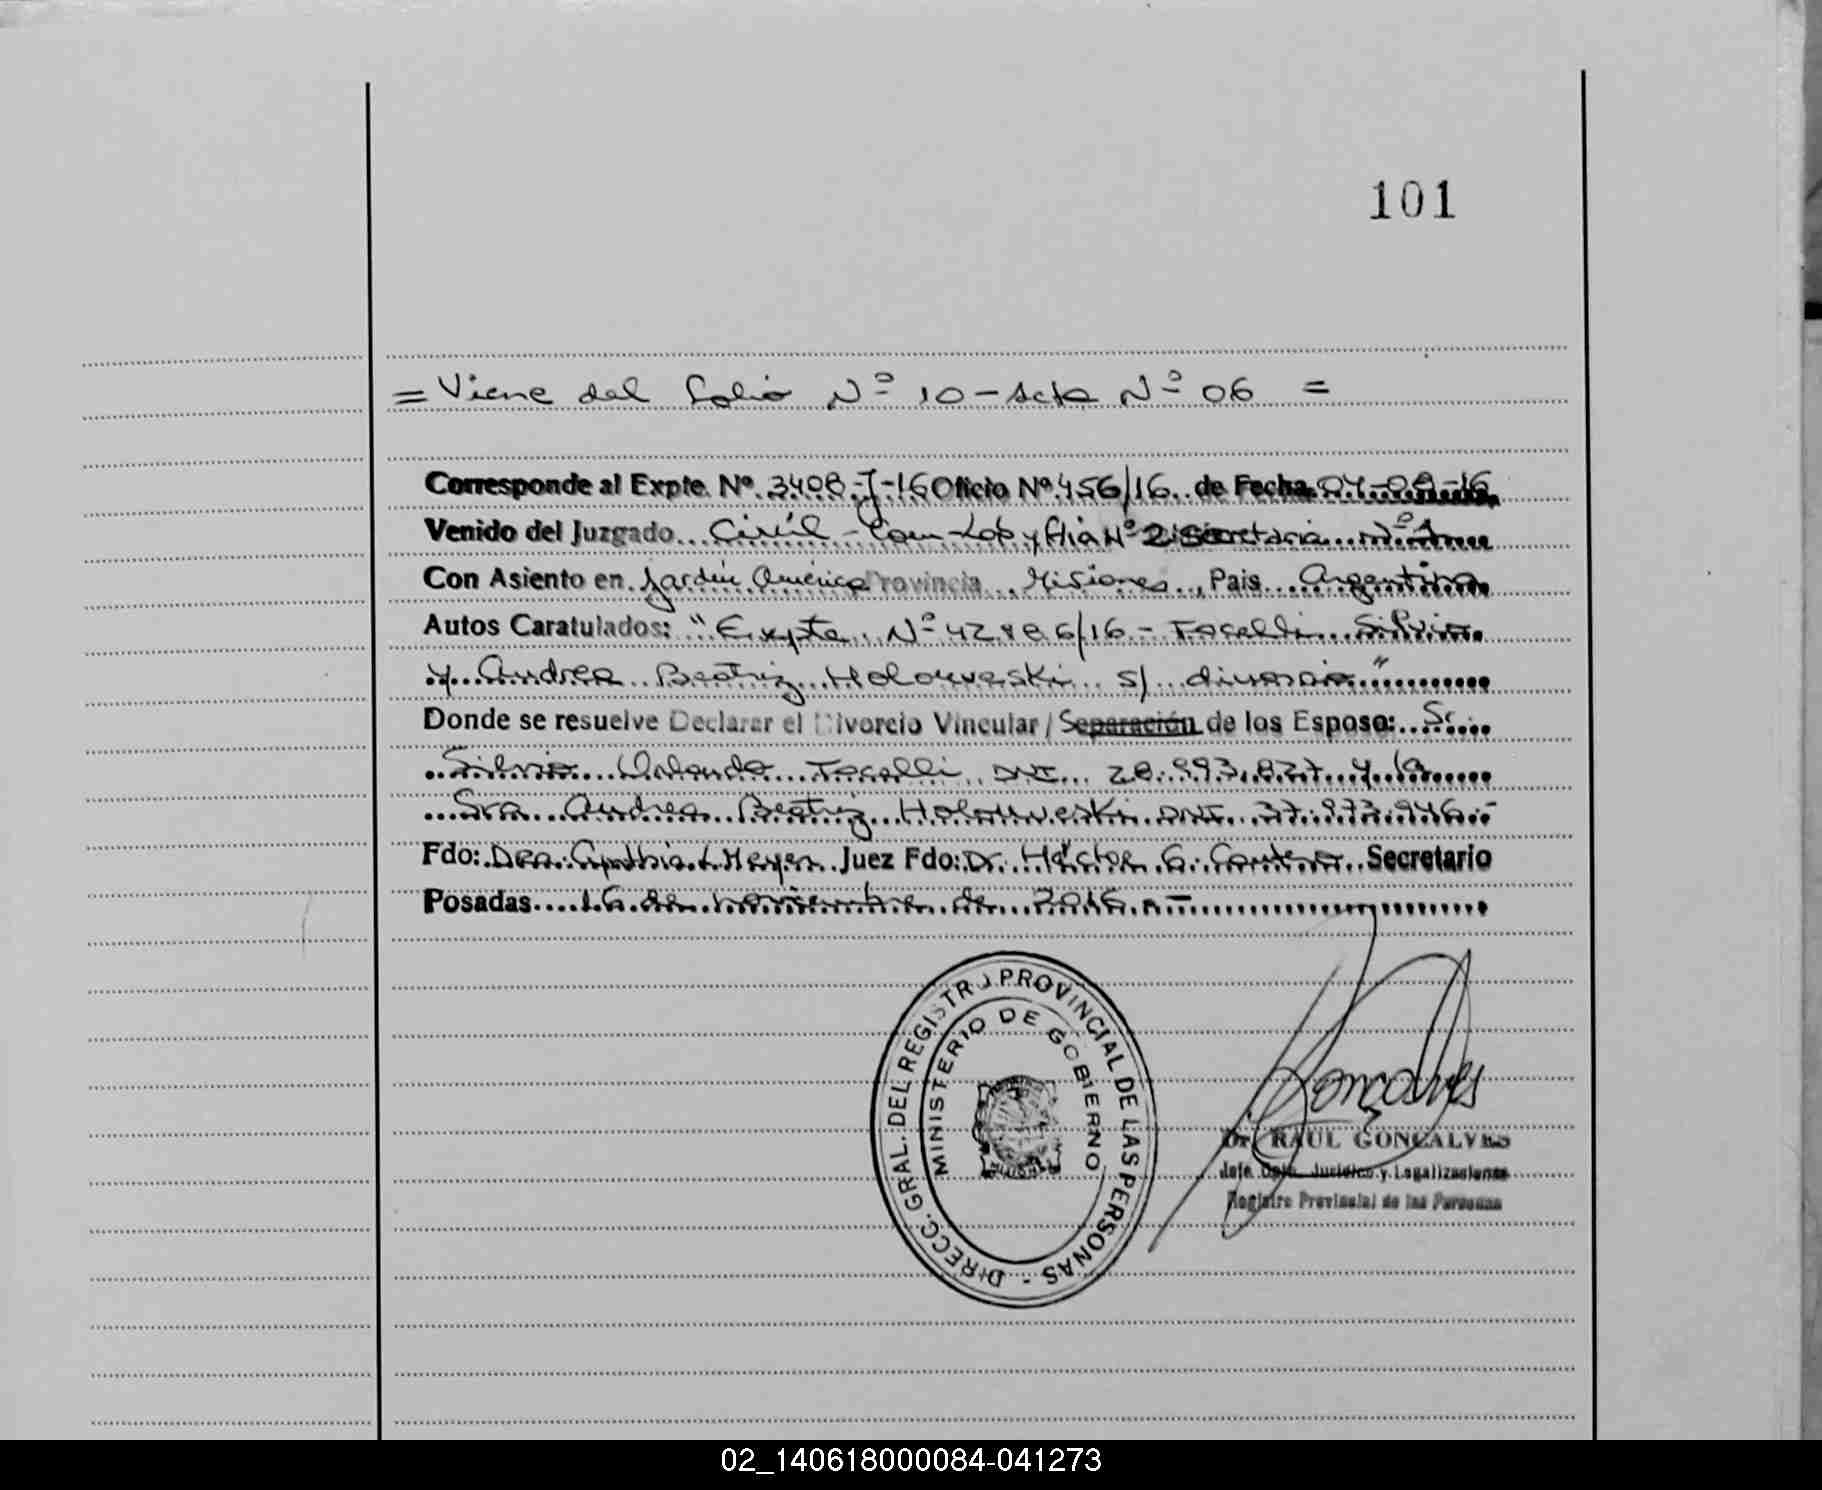 101
= Viene del Folio Nº 10 - Acta Nº 06 =
Corresponde al Expte. Nº. 3408-J-16 Oficio Nº 456/16 de Fecha 04-08-16
Venido del Juzgado Civil - Com - Lab y Flia Nº 2 Secretaria Nº 1
Con Asiento en Jardín América Provincia Misiones, Pais Argentina
Autos Caratulados: "Expte Nº /16 - Silvio
y Andrea Beatriz Holowveski s/ divorcio"
Donde se resuelve Declarar el Divorcio Vincular / Separación de los Esposo: Sr.
Silvio Orlando DNI 28.993.827 y la
Sra Andrea Beatriz Holowveski DNI 37.973.946.-
Fdo: Dra. Cynthia L. Heyen Juez Fdo: Dr. Héctor G. Secretario
Posadas 16 de noviembre de 2016.-
DIRECC. GRAL. DEL REGISTRO PROVINCIAL DE LAS PERSONAS -
MINISTERIO DE GOBIERNO
Goncalves
Dr. RAUL GONCALVES
Jefe Dpto. Juridico y Legalizaciones
Registro Provincial de las Personas
02_140618000084-041273